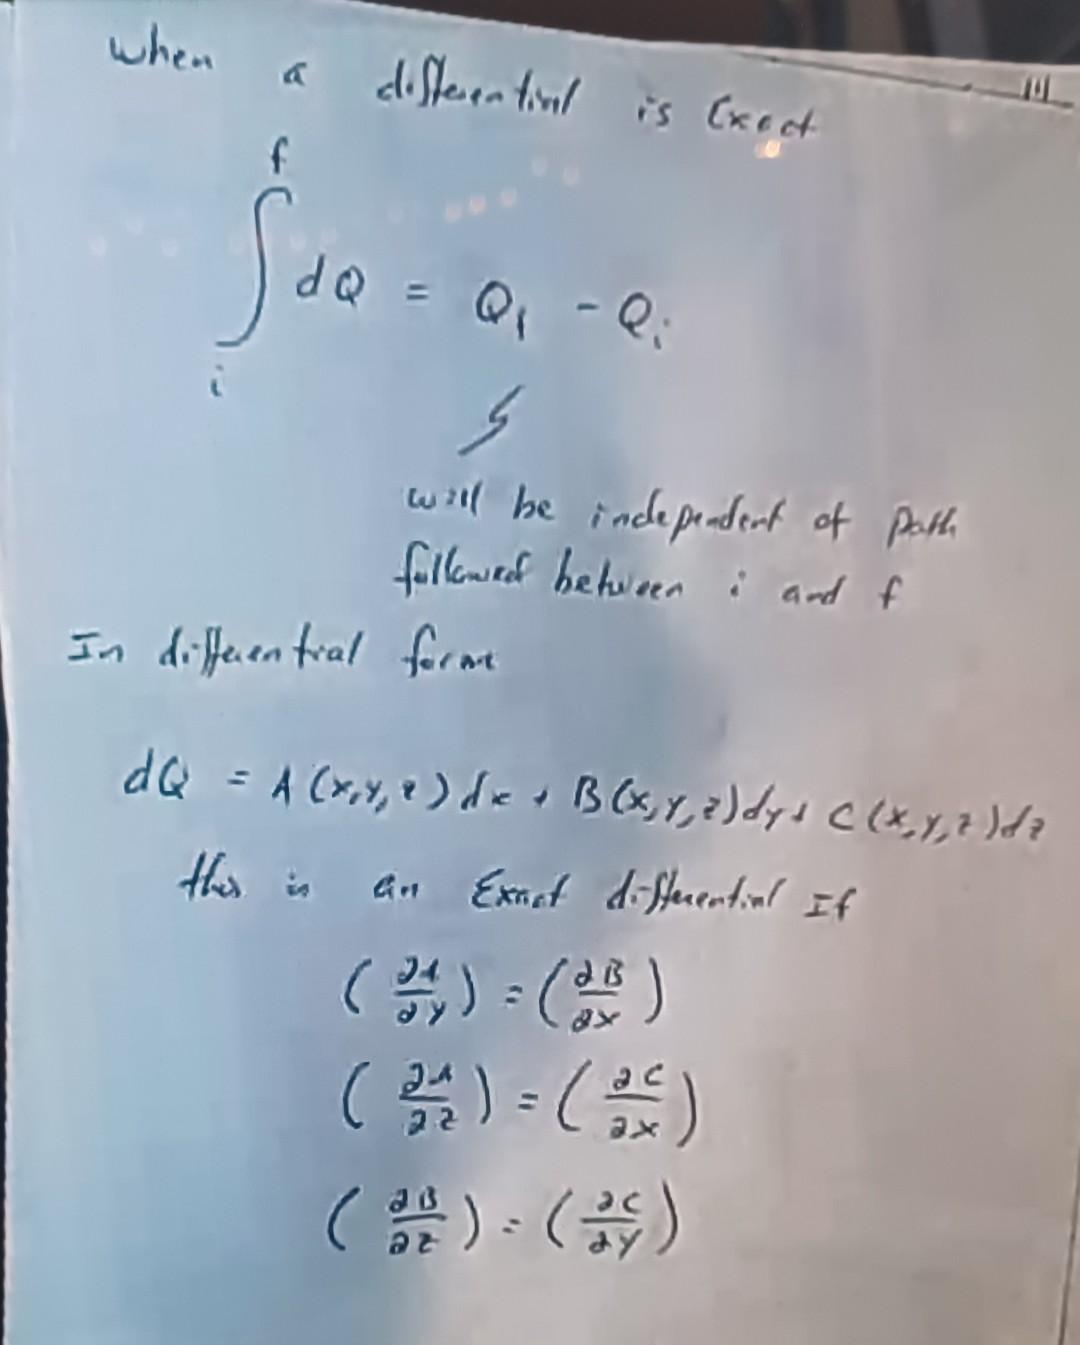 when a differential is Exact
f
∫ dQ = Q₁ - Qᵢ
i
will be independent of path
followed between i and f
In differential form
dQ = A(x,y,z)dx + B(x,y,z)dy + C(x,y,z)dz
this is an Exact differential If
(∂A/∂y) = (∂B/∂x)
(∂A/∂z) = (∂C/∂x)
(∂B/∂z) = (∂C/∂y)